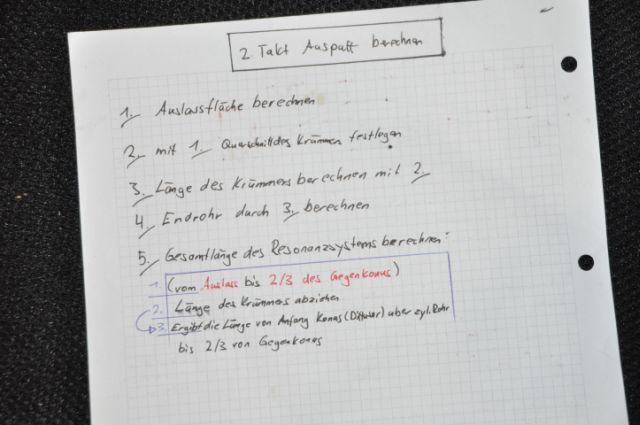 2. Takt Auspuff berechnen
1. Auslassfläche berechnen
2. mit 1. Querschnitt des Krümmen festlegen
3. Länge des Krümmers berechnen mit 2.
4. Endrohr durch 3. berechnen
5. Gesamtlänge des Resonanzsystems berechnen:
1. (vom Auslass bis 2/3 des Gegenkonus)
2. Länge des Krümmers abziehen
3. Ergibt die Länge von Anfang Konus (Diffusor) über zyl. Rohr
bis 2/3 von Gegenkonus